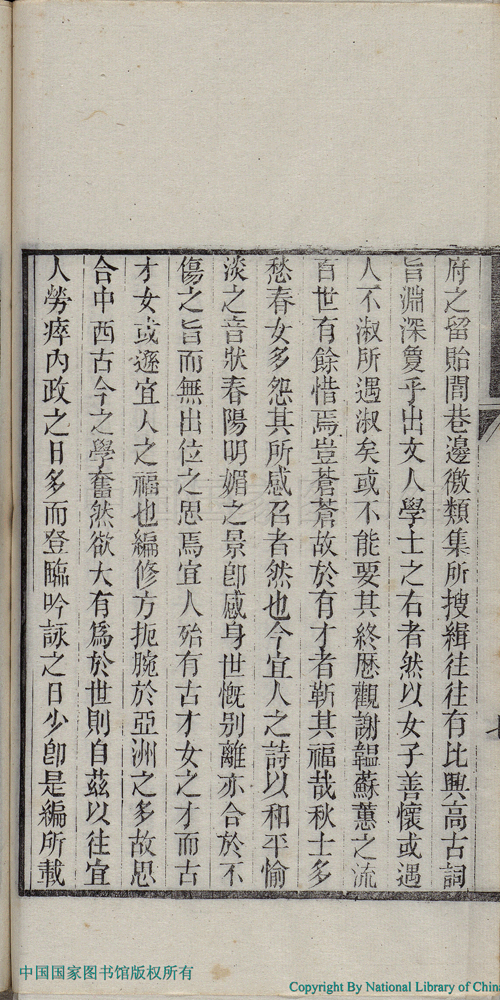 府之留貽閭巷邊徼類集所搜緝往往有比興高古詞
旨淵深敻乎出文人學士之右者然以女子善懷或遇
人不淑所遇淑矣或不能要其終歷觀謝韞蘇蕙之流
百世有餘惜焉豈蒼蒼故於有才者靳其福哉秋士多
愁春女多怨其所感召者然也今宜人之詩以和平愉
淡之音狀春陽明媚之景卽感身世慨別離亦合於不
傷之旨而無出位之思焉宜人殆有古才女之才而古
才女或遜宜人之福也編修方扼腕於亞洲之多故思
合中西古今之學奮然欲大有爲於世則自茲以往宜
人勞瘁內政之日多而登臨吟詠之日少卽是編所載
中国国家图书馆版权所有
Copyright By National Library of Chin